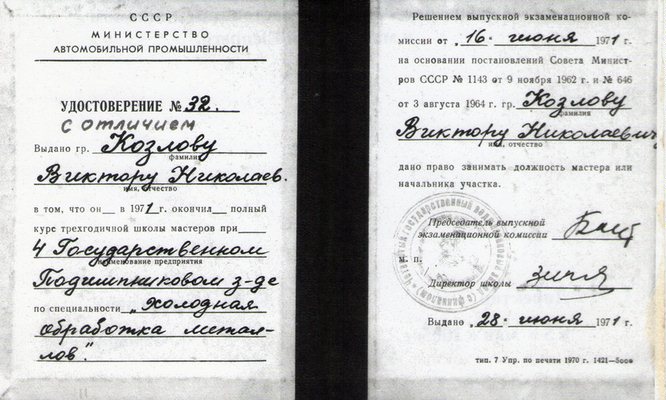 СССР
МИНИСТЕРСТВО
АВТОМОБИЛЬНОЙ ПРОМЫШЛЕННОСТИ
УДОСТОВЕРЕНИЕ № 32.
с отличием
Выдано гр. Козлову
фамилия
Виктору Николаев.
имя, отчество
в том, что он — в 1971 г. окончил — полный
курс трехгодичной школы мастеров при —
4 Государственном
наименование предприятия
Подшипниковом з-де
по специальности „Холодная
обработка метал-
лов".
Решением выпускной экзаменационной ко-
миссии от „16." июня 1971 г.
на основании постановлений Совета Минист-
ров СССР № 1143 от 9 ноября 1962 г. и № 646
от 3 августа 1964 г. гр. Козлову
фамилия
Виктору Николаевичу
имя, отчество
дано право занимать должность мастера или
начальника участка.
Председатель выпускной
экзаменационной комиссии
м. п.
Директор школы
Выдано „28." июня 1971 г.
тип. 7 Упр. по печати 1970 г. 1421—5000